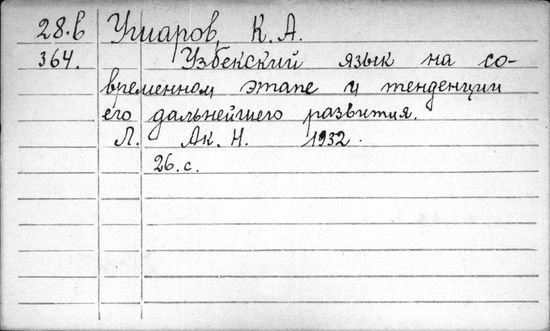 28.в Умаров К. А.
364. Узбекский язык на со-
временном этапе и тенденции
его дальнейшего развития.
Л. Ак. Н. 1932.
26. с.